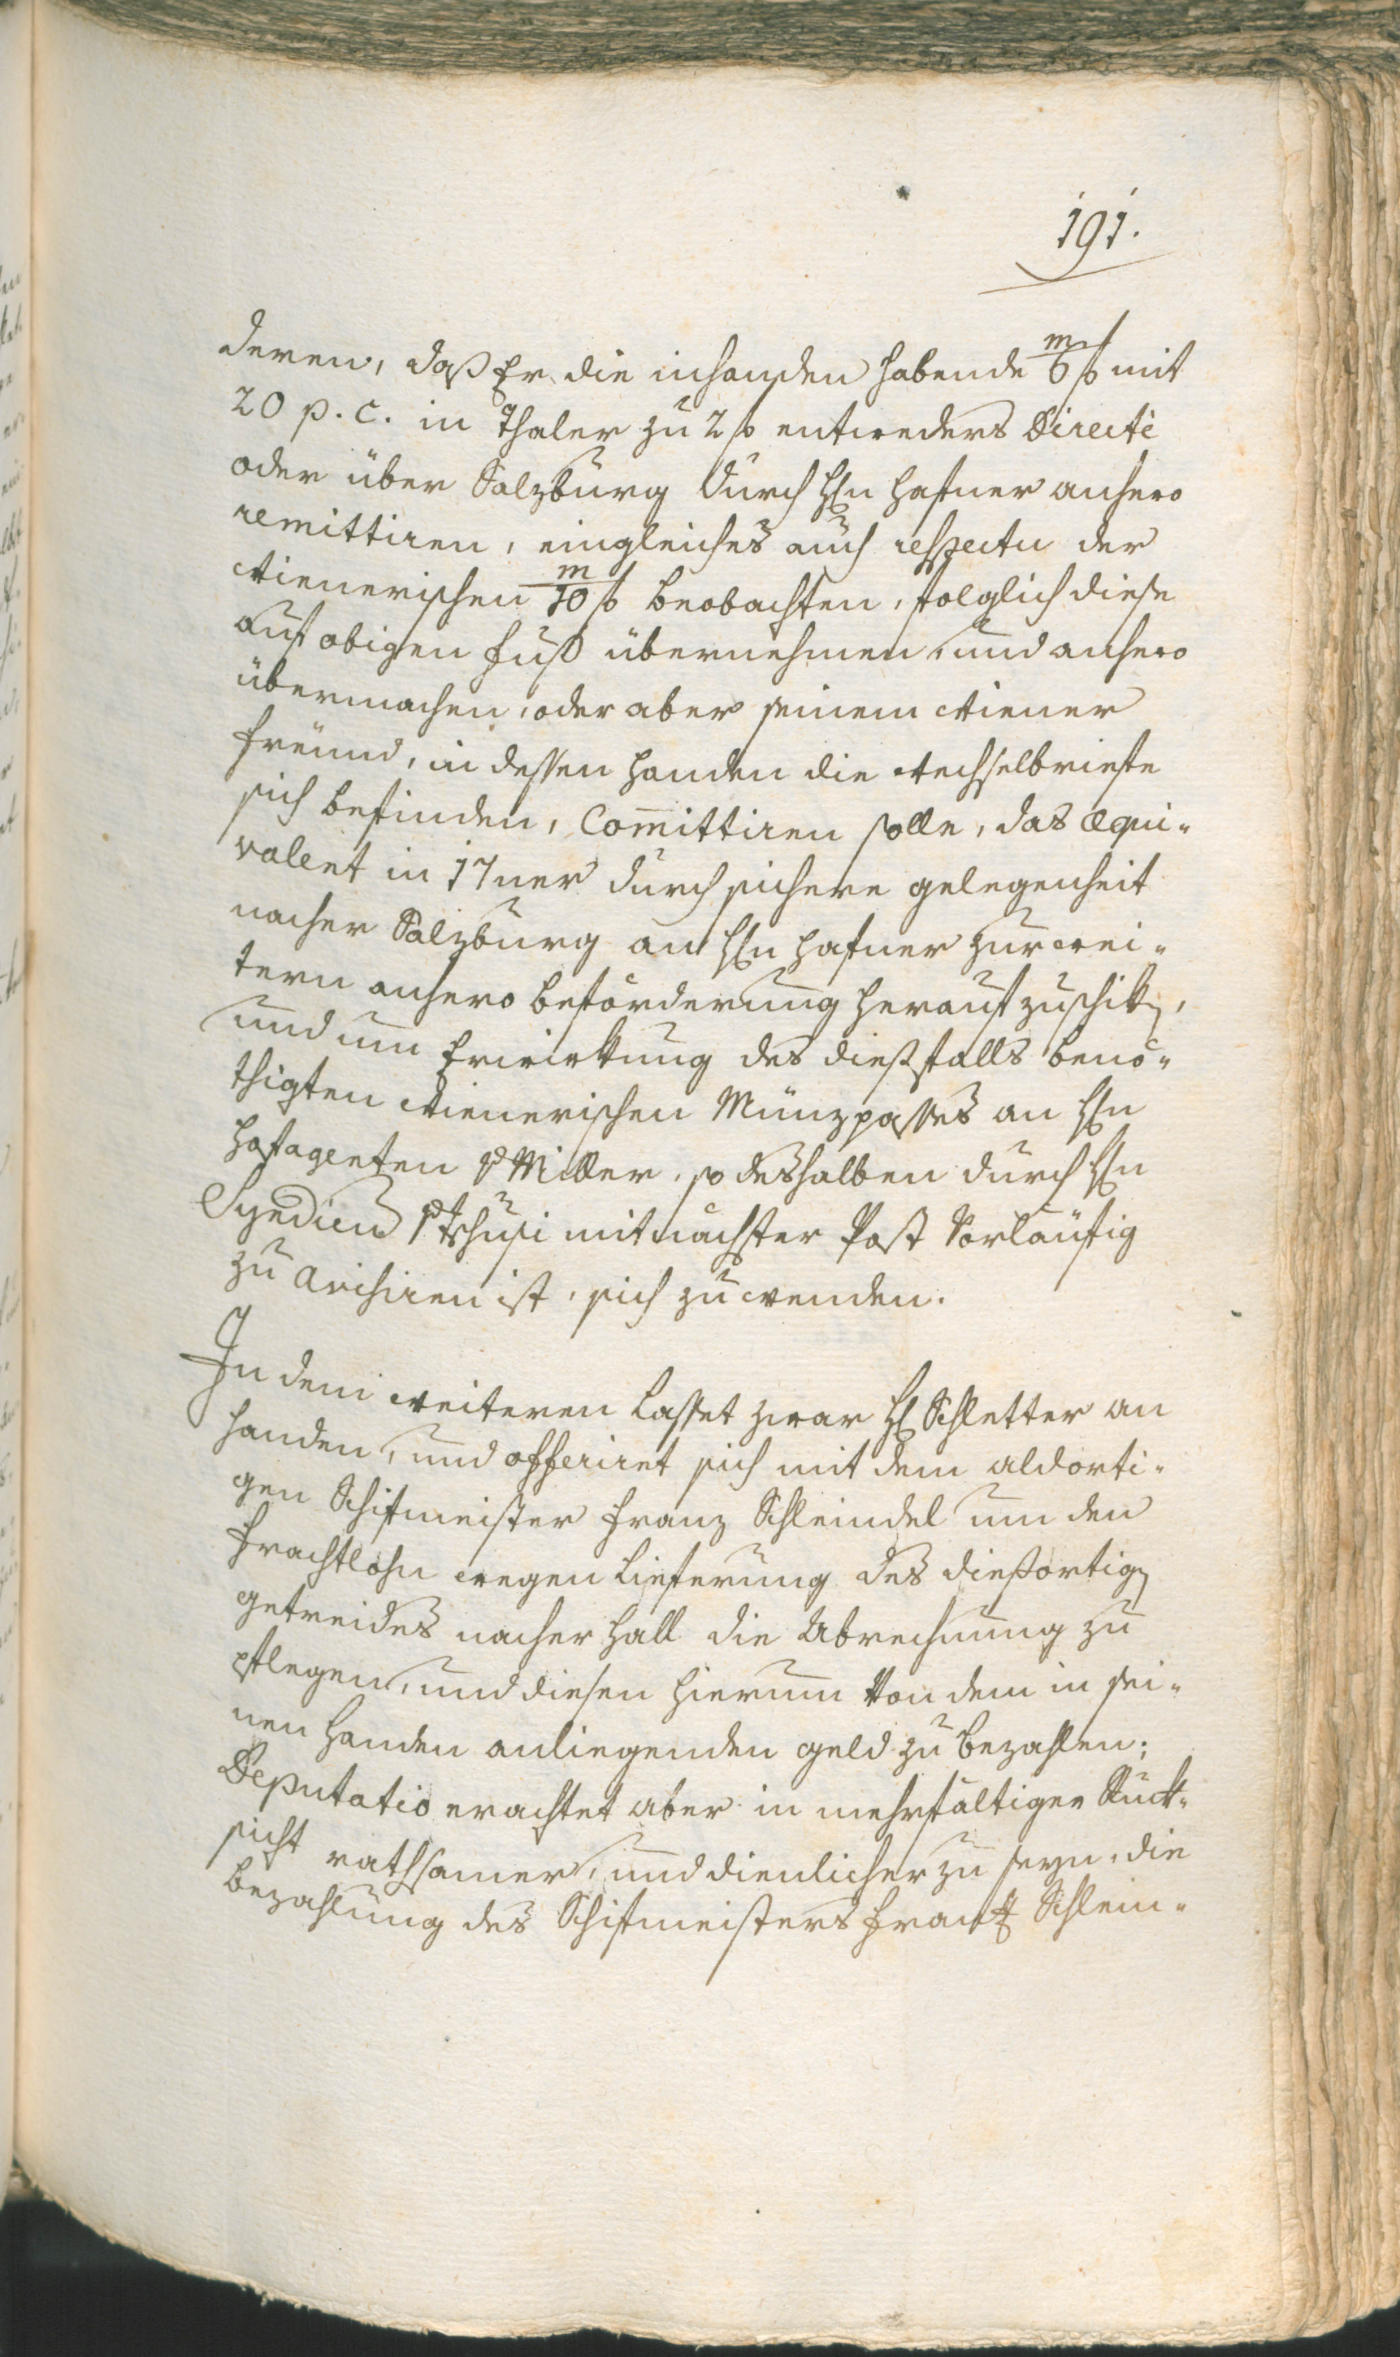 191.
deren, daß Er die inhanden habende 6/m f mit
20 p. c. in Thaler zu 2 f entweders Directè
oder über Salzburg durch Hℓn Hafner anhero
remittiren, eingleiches auch respectu der
Wienerischen 10/m f beobachten, folglich diese
auf obigen Fuß übernehmen, und anhero
übermachen, oder aber seinem Wiener
Freund, in dessen Handen die Wechselbriefe
sich befinden, Com̄ittiren solle, das æqui-
valent in 17ner durch sichere gelegenheit
nacher Salzburg an Hℓn Hafner zur wei-
tern anhero beförderung herauf zuschiken,
und um Erwirkung des dießfalls benö-
thigten Wienerischen Münzpasses an Hℓn
Hofagenten v Miller, so deshalben durch Hℓn
Syndicus v Tschusi mit nächster Post Vorläufig
zu avisiren ist, sich zu wenden.
In dem weiteren lasset zwar Hℓ Schletter an
Handen, und offeriret sich mit dem aldorti-
gen Schifmeister Franz Schleindel um den
Frachtlohn wegen Lieferung des dießortigen
getreides nacher Hall die Abrechnung zu
pflegen, und diesen hierum Von dem in sei-
nen Handen anliegenden geld zu bezahlen;
Deputatio erachtet aber in mehrfältiger Ruck-
sicht rathsamer, und dienlicher zu seyn, die
bezahlung des Schifmeisters Frantz Schlein-